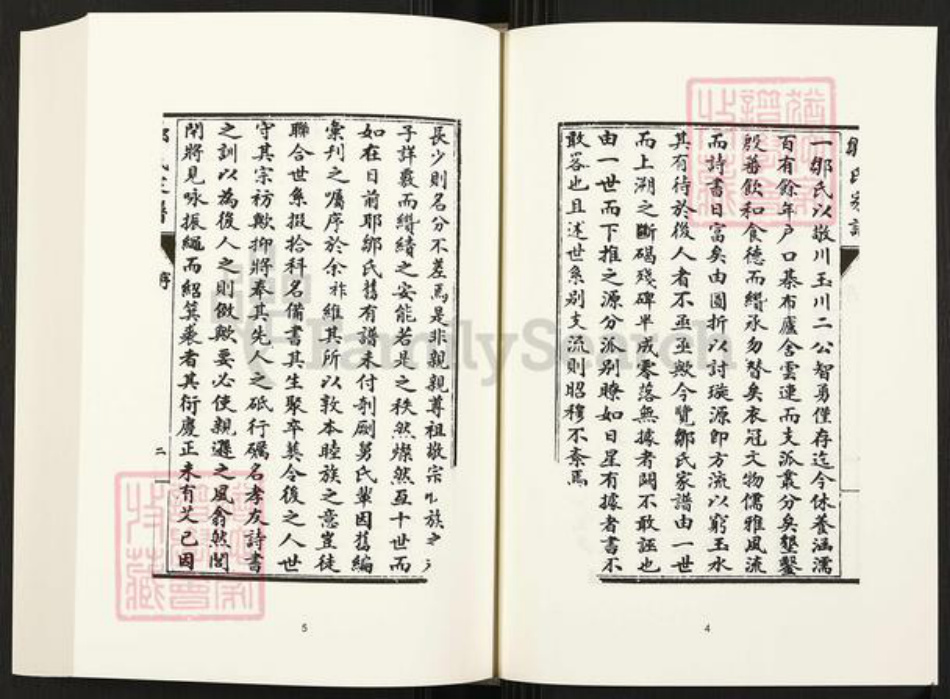 鄒氏家譜
一鄒氏以敬川玉川二公智勇僅存迄今休養涵濡
百有餘年户口棊布廬舍雲連而支派叢分矣墾鑿
殷蕃飲和食德而纘承勿替矣衣冠文物儒雅風流
而詩書日富矣由圓折以討璇源即方流以窮玉水
其有待於後人者不亟亟歟今覽鄒氏家譜由一世
而上溯之斷碣殘碑半成零落無據者闕不敢誣也
由一世而下推之源分派别瞭如日星有據者書不
敢畧也且述世系别支流則昭穆不紊焉
4
長少則名分不差焉是非親親尊祖敬宗收族之
子詳覈而纘續之安能若是之秩然燦然亙十世而
如在目前耶鄒氏舊有譜未付剞劂舅氏輩因舊編
彙刊之囑序於余祚維其所以敦本睦族之意豈徒
聯合世系掇拾科名備書其生聚卒葬令後之人世
守其宗祊歟抑將奉其先人之砥行礪名孝友詩書
之訓以為後人之則傚歟要必使親遜之風翕然閭
閈將見咏振繩而紹箕裘者其衍慶正未有艾已因
序
二
5
FamilySearch